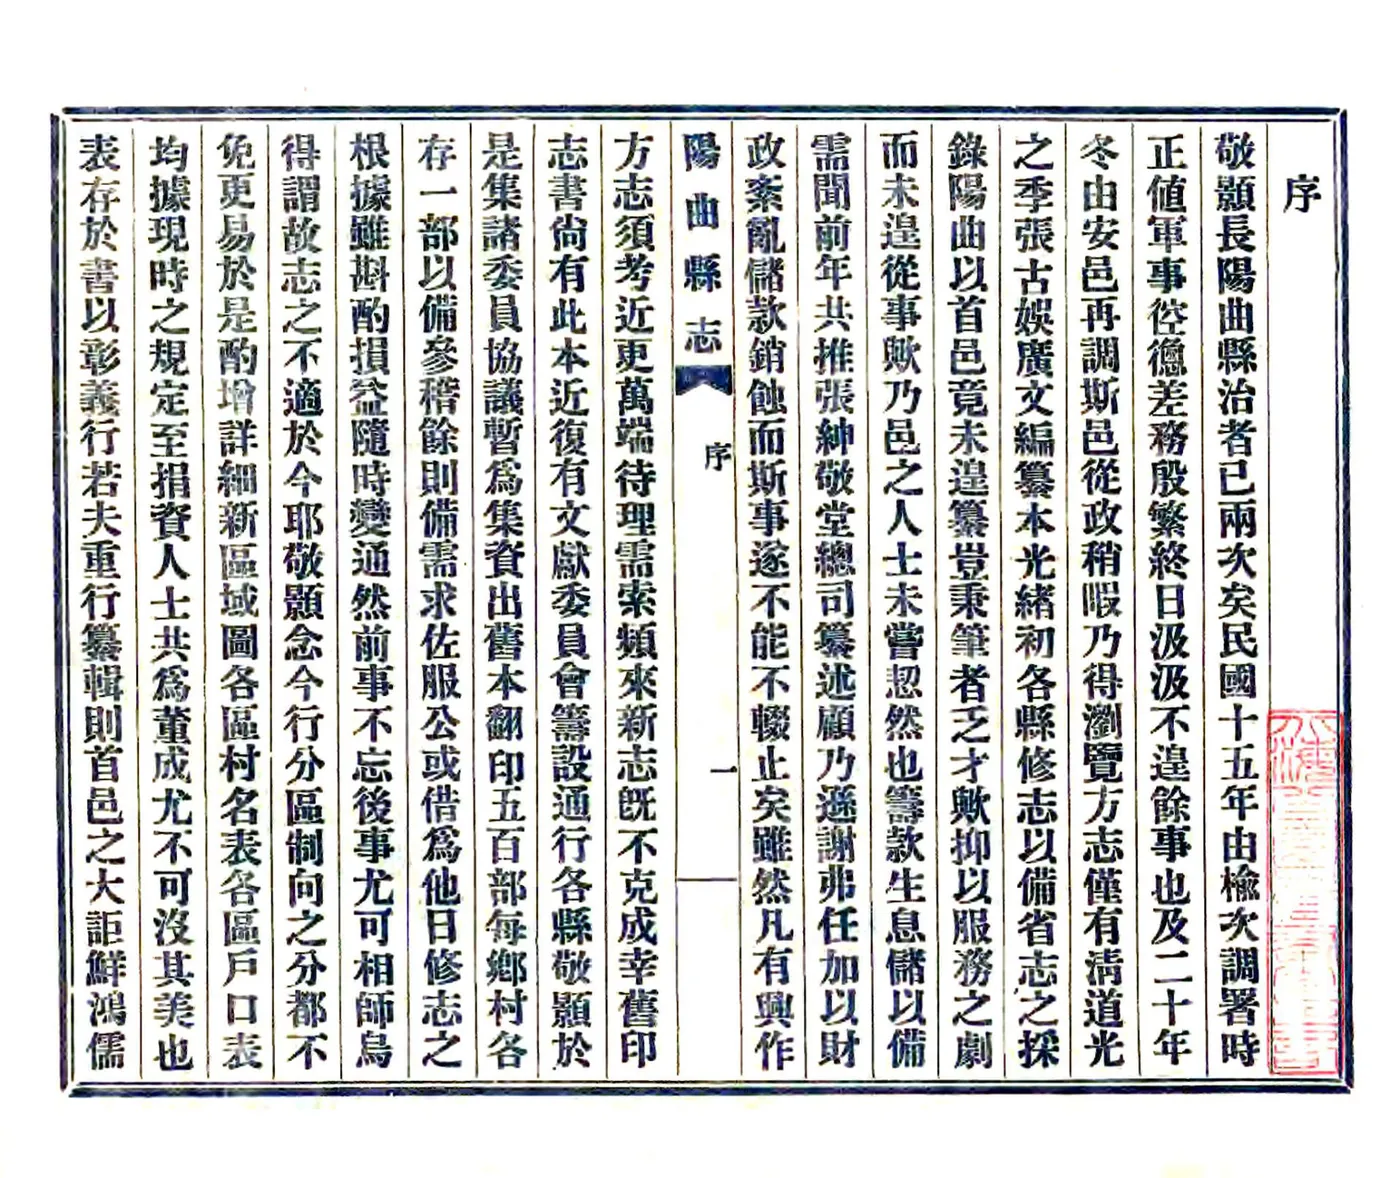 序
敬顥長陽曲縣治者已兩次矣民國十五年由榆次調署時
正值軍事倥傯差務殷繁終日汲汲不遑餘事也及二十年
冬由安邑再調斯邑從政稍暇乃得瀏覽方志僅有清道光
之季張古娛廣文編纂本光緒初各縣修志以備省志之採
錄陽曲以首邑竟未遑纂豈秉筆者乏才歟抑以服務之劇
而未遑從事歟乃邑之人士未嘗恝然也籌款生息儲以備
需聞前年共推張紳敬堂總司纂述顧乃遜謝弗任加以財
政紊亂儲款銷蝕而斯事遂不能不輟止矣雖然凡有興作
陽曲縣志
序
一
方志須考近更萬端待理需索頻來新志旣不克成幸舊印
志書尙有此本近復有文獻委員會籌設通行各縣敬顥於
是集諸委員協議暫爲集資出舊本翻印五百部每鄉村各
存一部以備參稽餘則備需求佐服公或借爲他日修志之
根據雖斟酌損益隨時變通然前事不忘後事尤可相師烏
得謂故志之不適於今耶敬顥念今行分區制向之分都不
免更易於是酌增詳細新區域圖各區村名表各區戶口表
均據現時之規定至捐資人士共爲董成尤不可沒其美也
表存於書以彰義行若夫重行纂輯則首邑之大詎鮮鴻儒